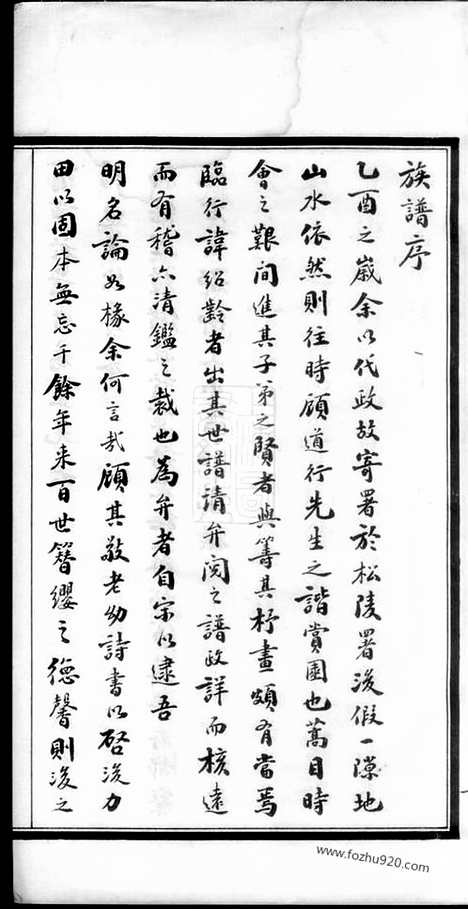 族譜序
乙酉之歲余以代政故寄署於松陵署後假一隙地
山水依然則往時顧道行先生之諧賞園也蒿目時
會之艱間進其子弟之賢者與籌其杼畫頗有當焉
臨行諱紹齡者出其世譜請弁閱之譜政詳而核遠
而有稽亦清鑑之裁也為弁者自宋以逮吾
明名論如椽余何言哉顧其敬老幼詩書以啓後力
田以固本無忘千餘年来百世簪纓之德馨則後之
www.fozhu920.com